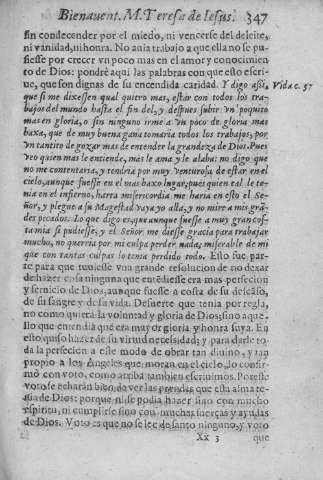 Bienauent. M. Teresa de Iesus. 347
sin condecender por el miedo, ni vencerse del deleite,
ni vanidad, ni honra. No auia trabajo a que ella no se pu-
siesse por crecer vn poco mas en el amor y conocimien
to de Dios: pondrè aqui las palabras con que esto escri-
ue, que son dignas de su encendida caridad. Y digo assi,
Vida c. 37
que si me dixessen qual quiero mas, estar con todos los tra-
bajos del mundo hasta el fin del, y despues subir vn poquito
mas en gloria, o sin ninguno irme a vn poco de gloria mas
baxa, que de muy buena gana tomaria todos los trabajos, por
vn tantito de gozar mas de entender la grandeza de Dios. Pues
veo quien mas le entiende, mas le ama y le alaba: no digo que
no me contentaria, y tendria por muy venturosa de estar en el
cielo, aunque fuesse en el mas baxo lugar, pues quien tal le te-
nia en el infierno, harta misericordia me haria en esto el Se-
ñor, y plegue a su Magestad vaya yo allà, y no mire a mis grã-
des pecados. Lo que digo es, que aunque fuesse a muy gran cos-
ta mia si pudiesse, y el Señor me diesse gracia para trabajar
mucho, no querria por mi culpa perder nada; miserable de mi
que con tantas culpas lo tenia perdido todo. Esto fue par-
te para que tuuiesse vna grande resolucion de no dexar
de hazer cosa ninguna que entẽdiesse era mas perfeccion
y seruicio de Dios, aunque fuesse a costa de su descãso,
de su sangre y de su vida. Desuerte que tenia por regla,
no como quiera la voluntad y gloria de Dios; sino aque-
llo que entendia què era mayor gloria y honra suya. En
esto quiso hazer de su virtud necessidad; y para darle to-
da la perfecion a este modo de obrar tan diuino, y tan
propio a los Angeles que moran en el cielo, lo confir-
mò con voto, como arriba tambien escriuimos. Por este
voto se echaràn bien de ver las prendas que esta alma te-
nia de Dios: porque ni se podia hazer sino con mucho
espiritu, ni cumplirse sino con muchas fuerças y ayudas
de Dios. Voto es que no se lee de santo ninguno, y voto
Xx 3 que